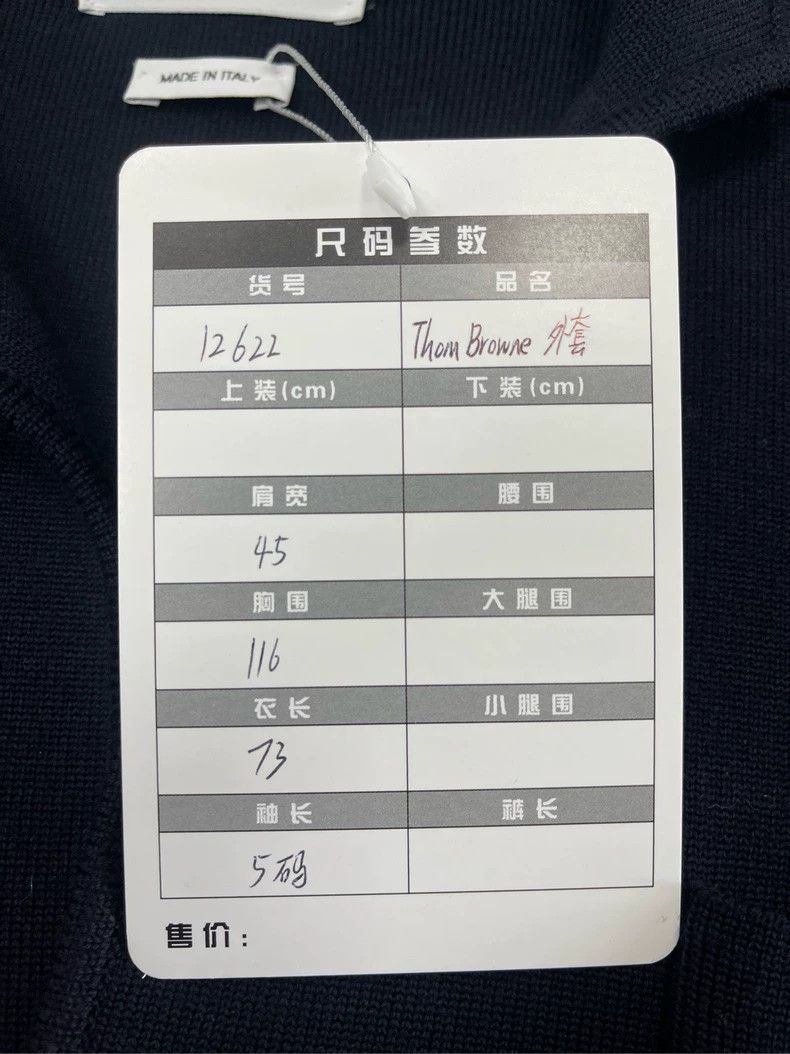 MADE IN ITALY
尺码参数
货号 品名
12622 Thom Browne 外套
上装(cm) 下装(cm)
肩宽 腰围
45
胸围 大腿围
116
衣长 小腿围
73
袖长 裤长
5码
售价: